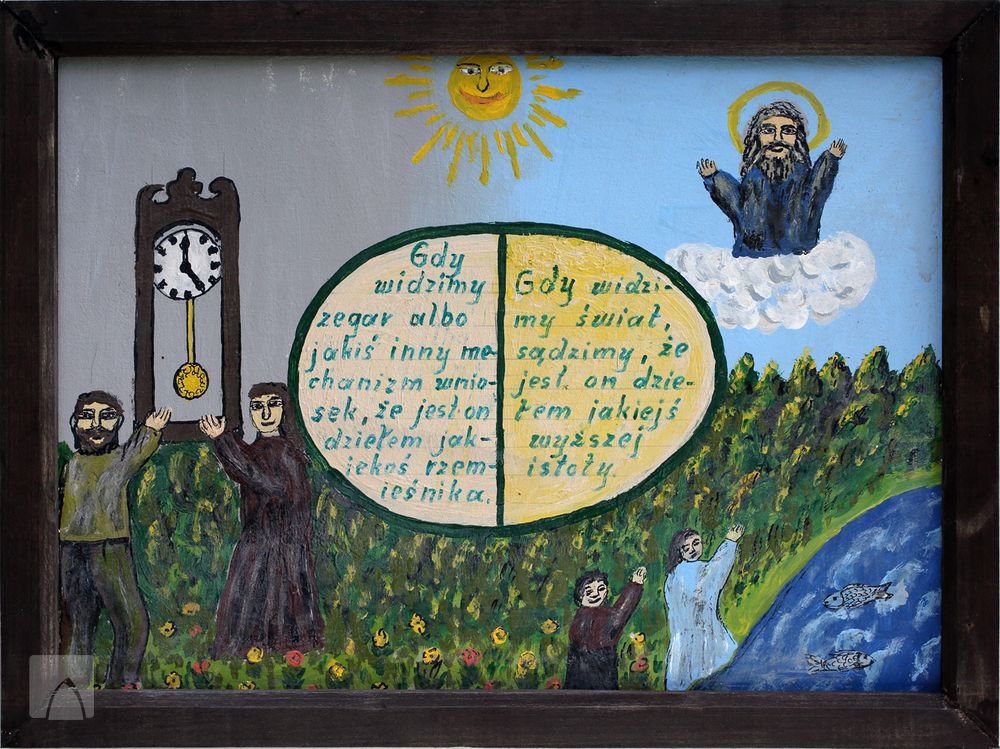 Gdy
widzimy
zegar albo
jakiś inny me-
chanizm wnio-
sek, że jest on
dziełem jak-
iekoś rzem-
ieśnika.
Gdy widzi-
my świat,
sądzimy, że
jest on dzie-
łem jakiejś
wyższej
istoty.